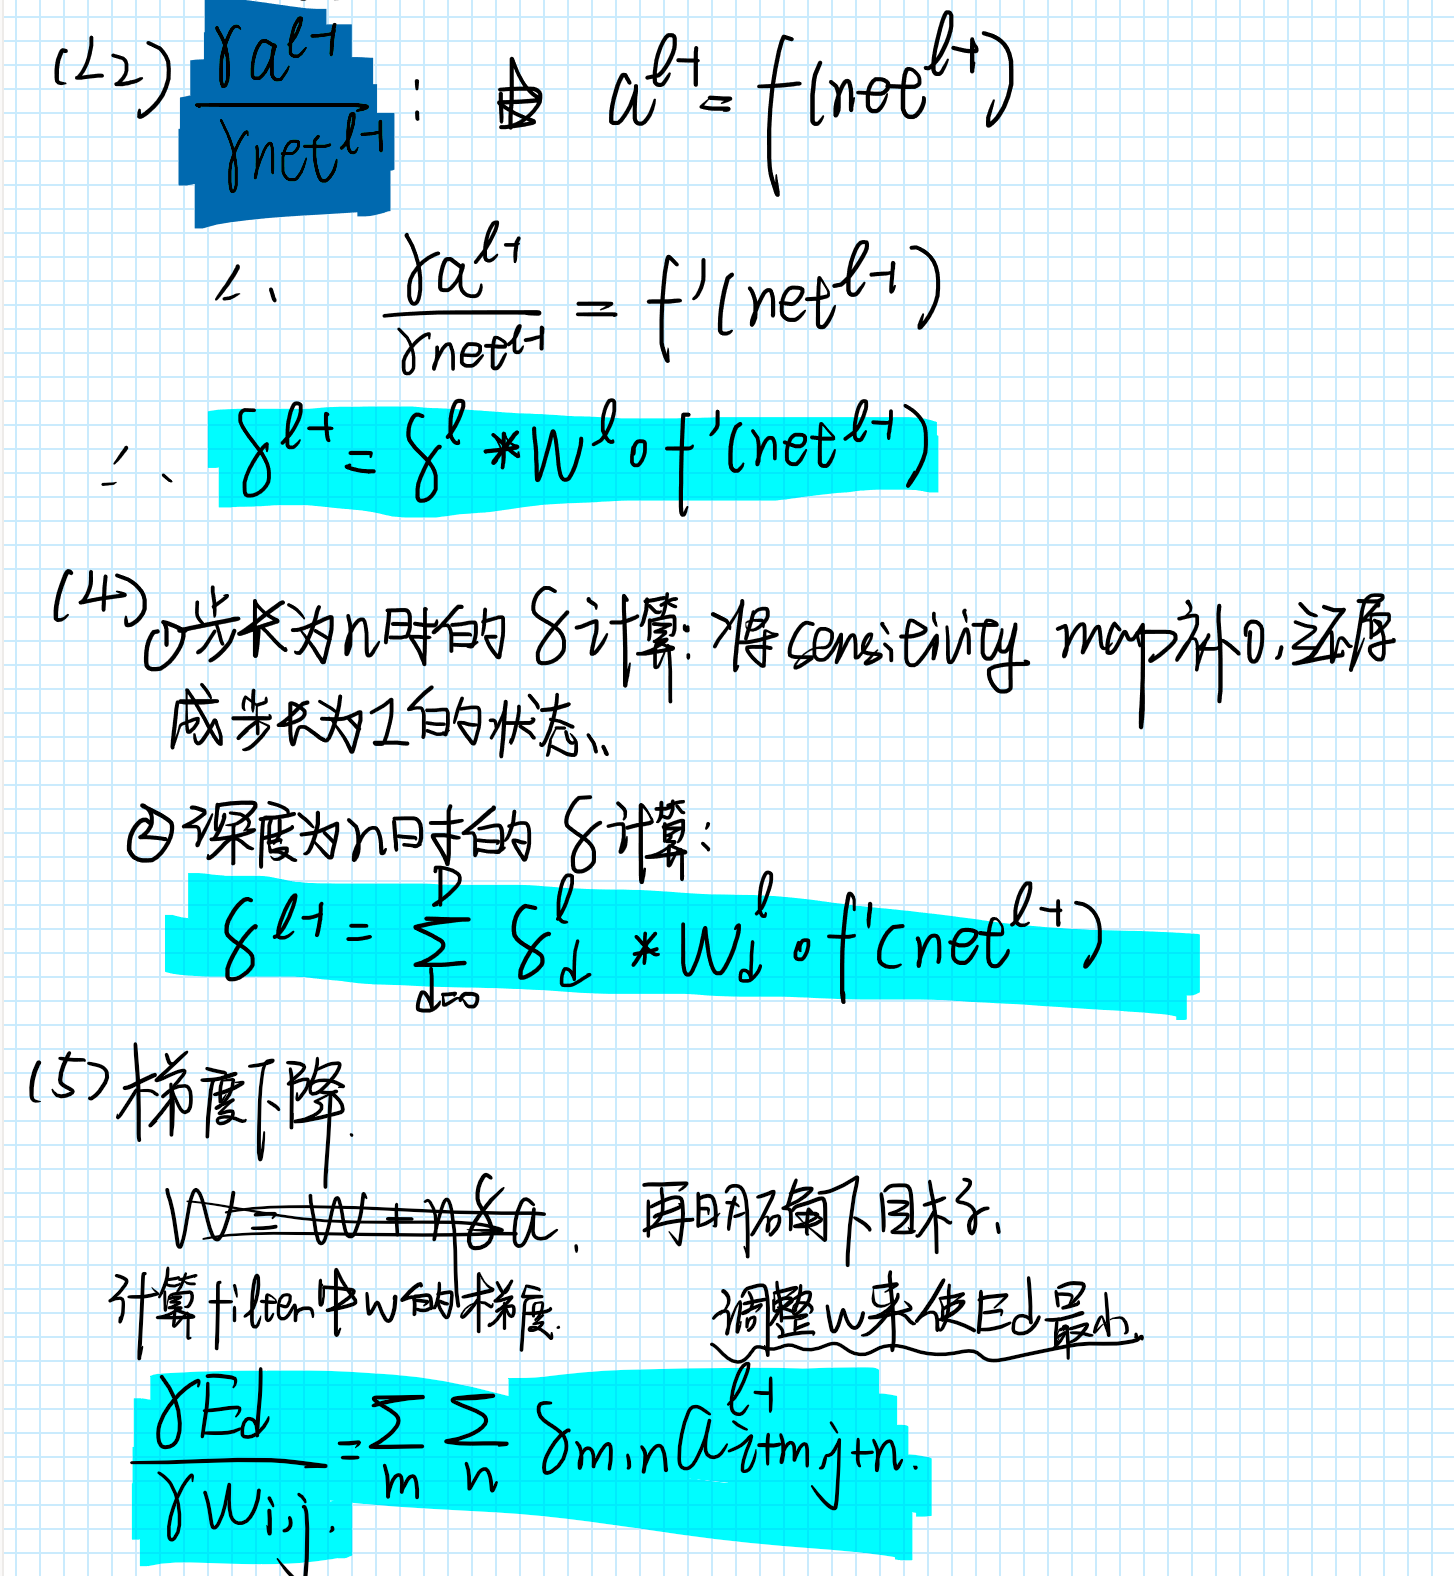 (L2) γa^{l-1} / γnet^{l-1} : 由 a^{l-1} = f(net^{l-1})
∴ γa^{l-1} / γnet^{l-1} = f'(net^{l-1})
∴ δ^{l-1} = δ^l * W^l ∘ f'(net^{l-1})
(4) ①步长为n时的 δ计算: 将sensitivity map补0,还原
成步长为1的状态、
②深度为n时的 δ计算:
δ^{l-1} = Σ_{d=0}^{D} δ_d^l * W_d^l ∘ f'(net^{l-1})
(5) 梯度下降.
W = W + ηδa. 再明确下目标.
计算filter中w的梯度. 调整w来使Ed最小.
γEd / γw_{i,j}. = Σ_m Σ_n δ_{m,n} a^{l-1}_{i+m,j+n}.